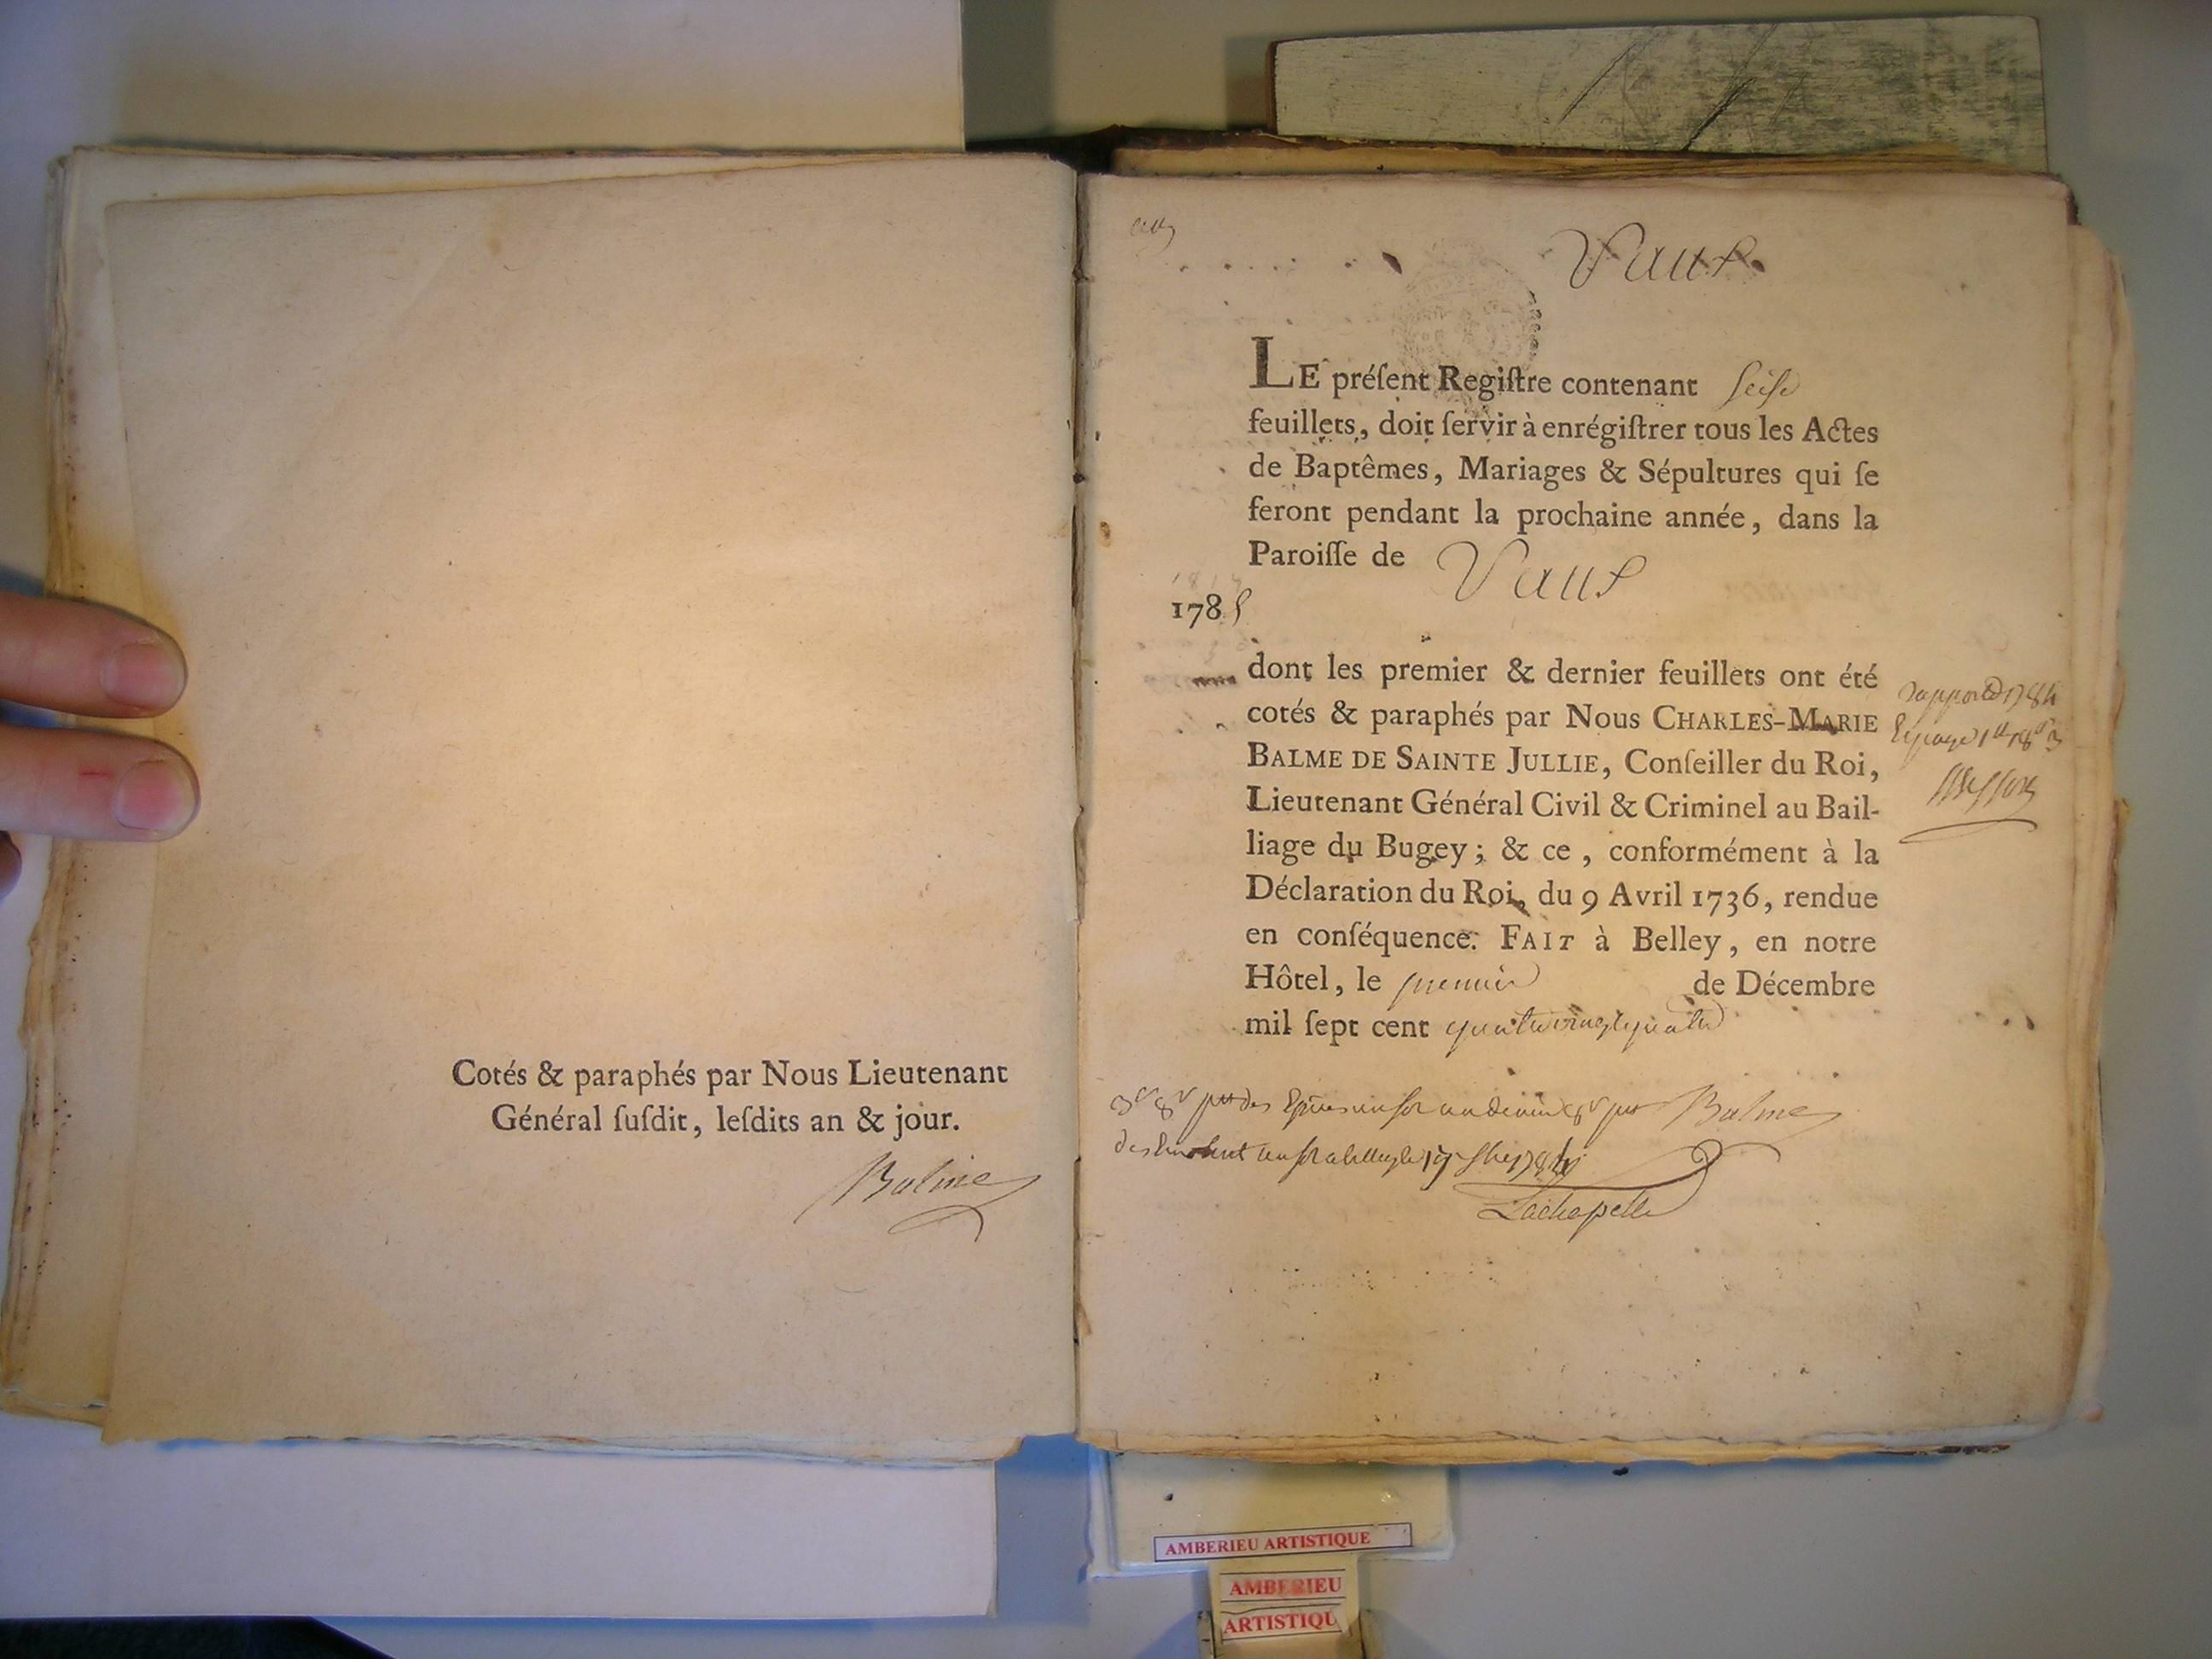 Cotés & paraphés par Nous Lieutenant
Général ſuſdit, leſdits an & jour.
Balme
Vaux
LE préſent Regiſtre contenant seise
feuillets, doit ſervir à enrégiſtrer tous les Actes
de Baptêmes, Mariages & Sépultures qui ſe
feront pendant la prochaine année, dans la
Paroiſſe de Vaux
1785
dont les premier & dernier feuillets ont été
cotés & paraphés par Nous CHARLES-MARIE
BALME DE SAINTE JULLIE, Conſeiller du Roi,
Lieutenant Général Civil & Criminel au Bail-
liage du Bugey; & ce, conformément à la
Déclaration du Roi, du 9 Avril 1736, rendue
en conſéquence. FAIT à Belley, en notre
Hôtel, le premier de Décembre
mil ſept cent quatre vingt quatre
Balme
Lachapelle
AMBERIEU ARTISTIQUE
AMBERIEU
ARTISTIQU